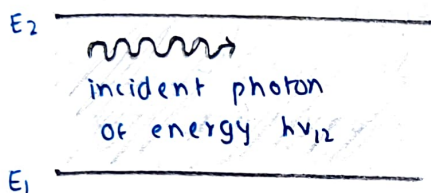 E2
incident photon
of energy hν12
E1